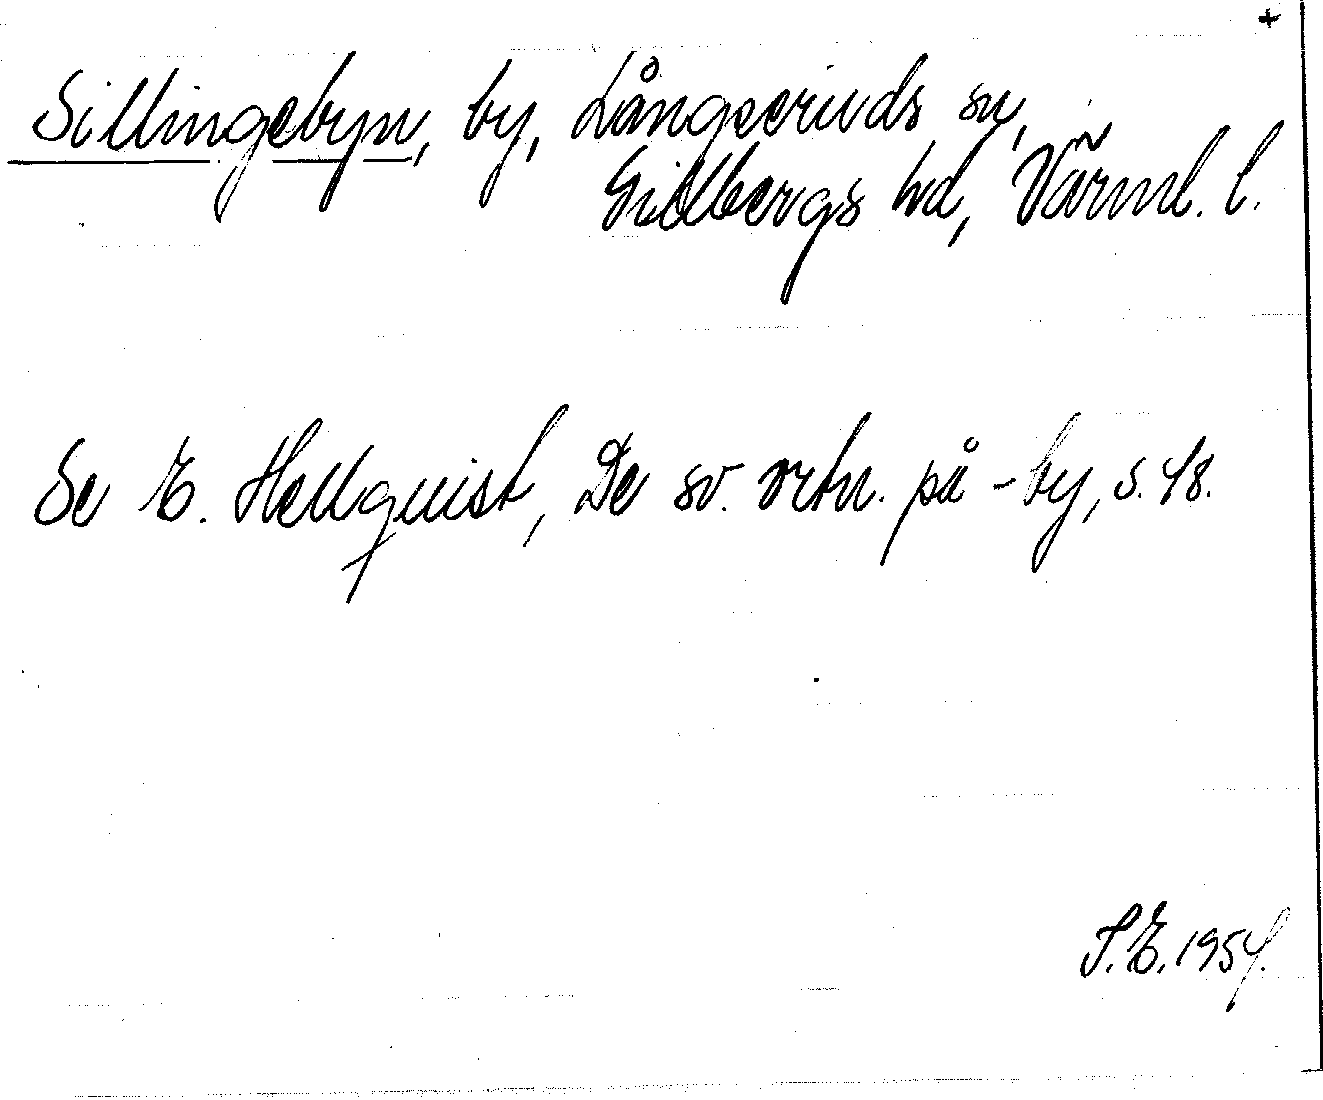 +
Sillingebyn, by, Långseruds sn,
Gillbergs hd, Värml. l.
Se E. Hellquist, De sv. ortn. på -by, s. 48.
S.E. 1954.